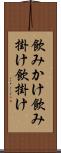 飲みかけ飲み
掛け飲掛け